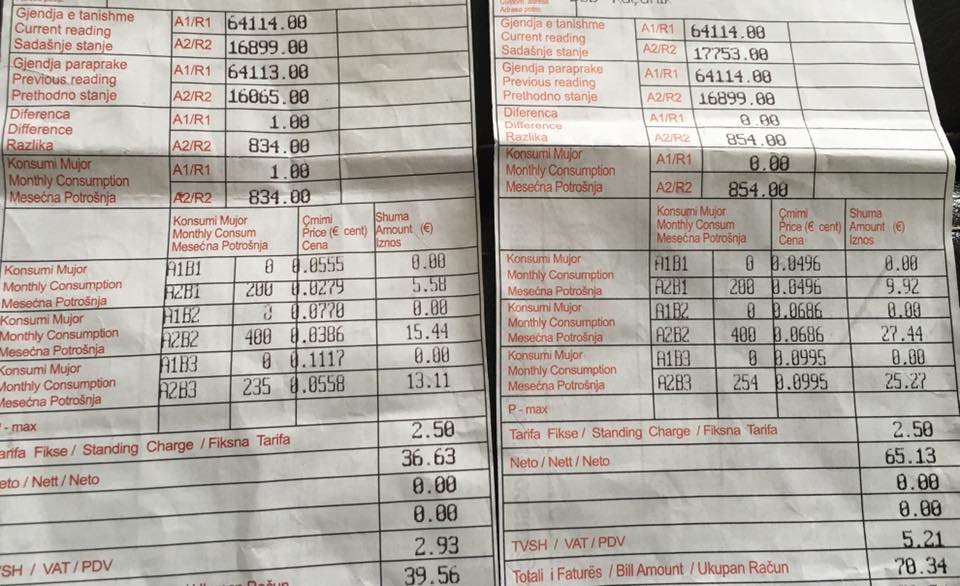 Gjendja e tanishme
Current reading
Sadašnje stanje
A1/R1 64114.00
A2/R2 16899.00
Gjendja paraprake
Previous reading
Prethodno stanje
A1/R1 64113.00
A2/R2 16065.00
Diferenca
Difference
Razlika
A1/R1 1.00
A2/R2 834.00
Konsumi Mujor
Monthly Consumption
Mesećna Potrošnja
A1/R1 1.00
A2/R2 834.00
Konsumi Mujor
Monthly Consum
Mesećna Potrošnja
Çmimi
Price (€ cent)
Cena
Shuma
Amount (€)
Iznos
Konsumi Mujor
Monthly Consumption
Mesećna Potrošnja
Konsumi Mujor
Monthly Consumption
Mesećna Potrošnja
Konsumi Mujor
Monthly Consumption
Mesećna Potrošnja
A1B1 0 0.0555 0.00
A2B1 200 0.0279 5.58
A1B2 0 0.0770 0.00
A2B2 400 0.0386 15.44
A1B3 0 0.1117 0.00
A2B3 235 0.0558 13.11
- max
arifa Fikse / Standing Charge / Fiksna Tarifa 2.50
eto / Nett / Neto 36.63
0.00
0.00
SH / VAT / PDV 2.93
39.56
Gjendja e tanishme
Current reading
Sadašnje stanje
A1/R1 64114.00
A2/R2 17753.00
Gjendja paraprake
Previous reading
Prethodno stanje
A1/R1 64114.00
A2/R2 16899.00
Diferenca
Difference
Razlika
A1/R1 0.00
A2/R2 854.00
Konsumi Mujor
Monthly Consumption
Mesećna Potrošnja
A1/R1 0.00
A2/R2 854.00
Konsumi Mujor
Monthly Consum
Mesećna Potrošnja
Çmimi
Price (€ cent)
Cena
Shuma
Amount (€)
Iznos
Konsumi Mujor
Monthly Consumption
Mesećna Potrošnja
Konsumi Mujor
Monthly Consumption
Mesećna Potrošnja
Konsumi Mujor
Monthly Consumption
Mesećna Potrošnja
A1B1 0 0.0496 0.00
A2B1 200 0.0496 9.92
A1B2 0 0.0686 0.00
A2B2 400 0.0686 27.44
A1B3 0 0.0995 0.00
A2B3 254 0.0995 25.27
P - max
Tarifa Fikse / Standing Charge / Fiksna Tarifa 2.50
Neto / Nett / Neto 65.13
0.00
0.00
TVSH / VAT / PDV 5.21
Totali i Faturës / Bill Amount / Ukupan Račun 70.34